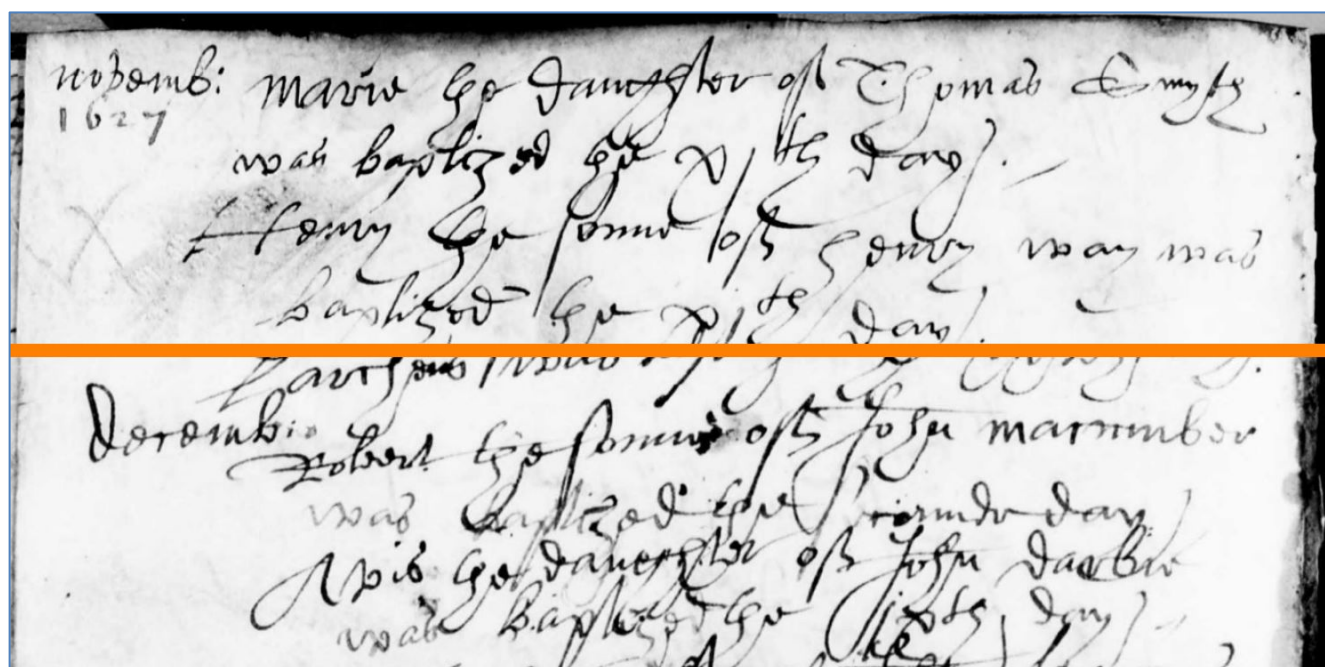 novemb: Marie the daughter off Thomas Smyth
1627
was baptized the xjth day.
Henry the sonne off henry way was
baptized the xjth day.
was
Decemb:
Robert the sonne off John Macumber
was baptized the seconde day
Avis the daughter off John darbie
was baptized the ixth day